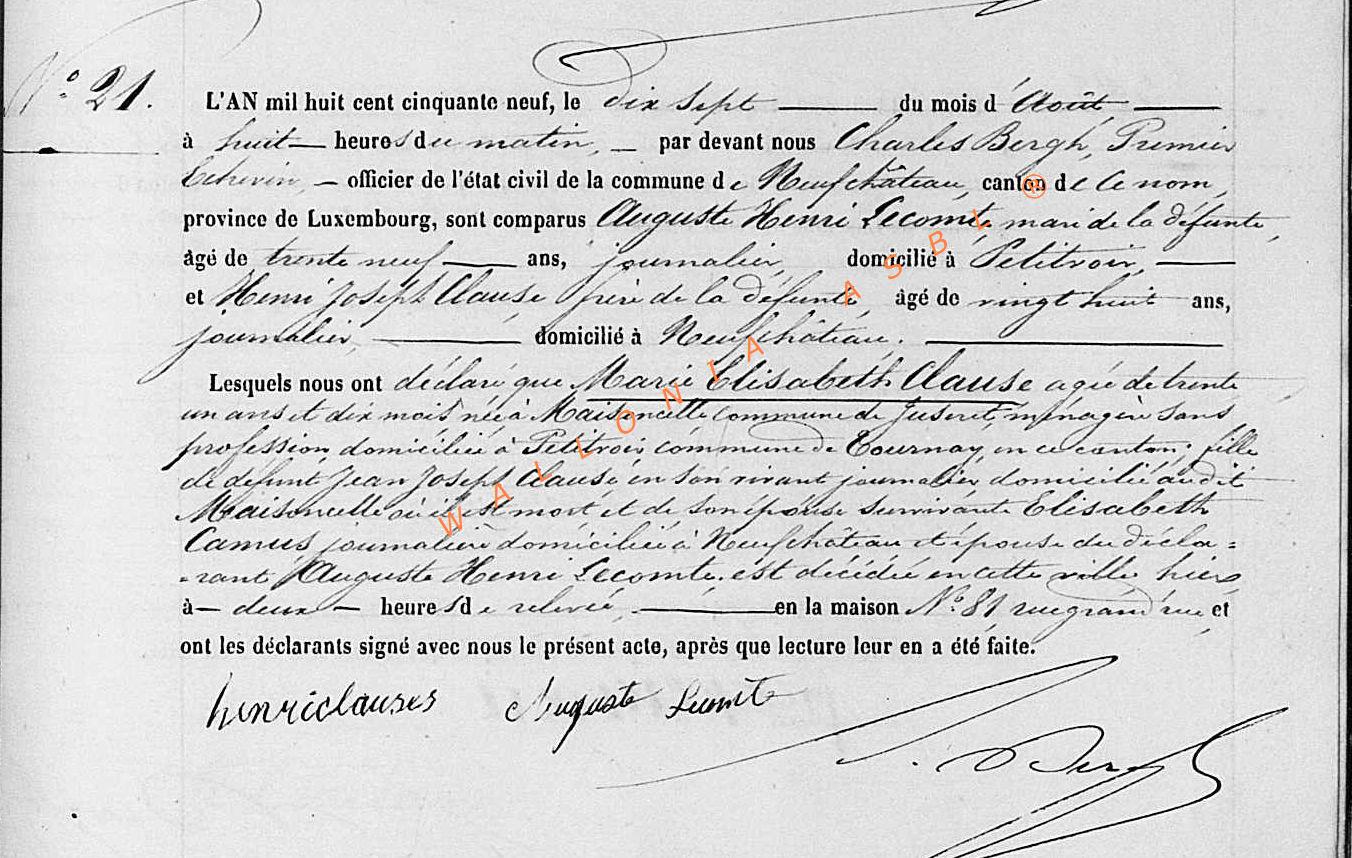 N° 21.
L'AN mil huit cent cinquante neuf, le dix sept du mois d'Août
à huit heures du matin, par devant nous Charles Bergh, Premier
Echevin, officier de l'état civil de la commune de Neufchâteau, canton de ce nom,
province de Luxembourg, sont comparus Auguste Henri Lecomte, mari de la défunte,
âgé de trente neuf ans, journalier, domicilié à Petitvoir,
et Henri Joseph Clause frère de la défunte, âgé de vingt huit ans,
journalier, domicilié à Neufchâteau.
Lesquels nous ont déclaré que Marie Elisabeth Clause agée de trente
un ans et dix mois née à Maisoncelle commune de Juseret, ménagère sans
profession domiciliée à Petitvoir commune de Tournay, en ce canton; fille
de défunt Jean Joseph Clause en son vivant journalier domicilié audit
Maisoncelle où il est mort et de son épouse survivante Elisabeth
Camus journalière domiciliée à Neufchâteau et épouse du décla=
=rant Auguste Henri Lecomte, est décédée en cette ville hier
à deux heures de relevée, en la maison N° 81 rue grand'rue et
ont les déclarants signé avec nous le présent acte, après que lecture leur en a été faite.
henri clauses Auguste Lecomte
Bergh
WALLONIA ASBL ®